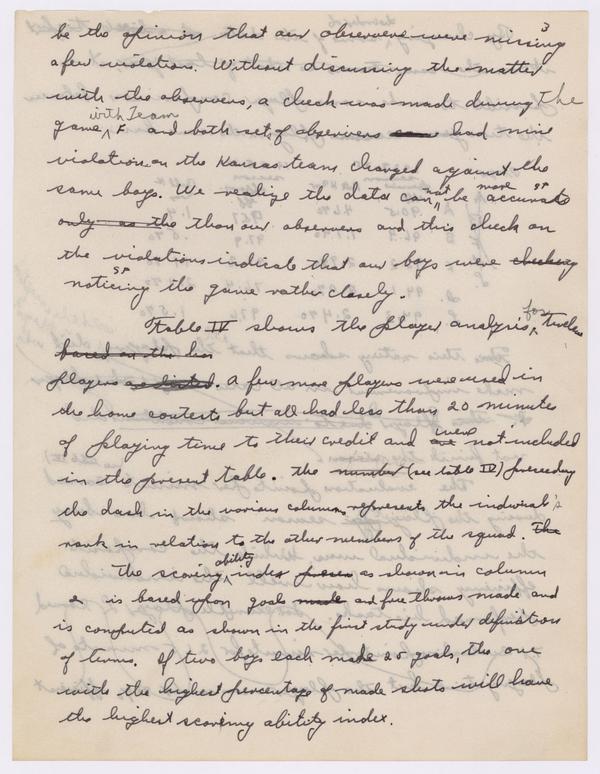 3
be the opinion that our observers were missing
a few violation. Without discussing the matter
with the observers, a check was made during the
with Team
game, F and both sets of observers had nine
violation on the Kansas team charged against the
same boys. We realize the data can not be more accurate
sp
only as the than our observers and this check on
the violations indicate that our boys were checking
sp
noticing the game rather closely.
Table IV shows the player analysis, for twelve
based on the
players as listed. A few more players were used in
the home contests but all had less than 20 minutes
of playing time to their credit and are were not included
in the present table. The number (see table IV) preceeding
the dash in the various columns represents the indivual's
rank in relation to the other members of the squad. The
The scoring ability index as shown in column
2 is based upon goals made and free throws made and
is computed as shown in the first study under definition
of terms. If two boys each made 25 goals, the one
with the highest percentage of made shots will have
the highest scoring ability index.